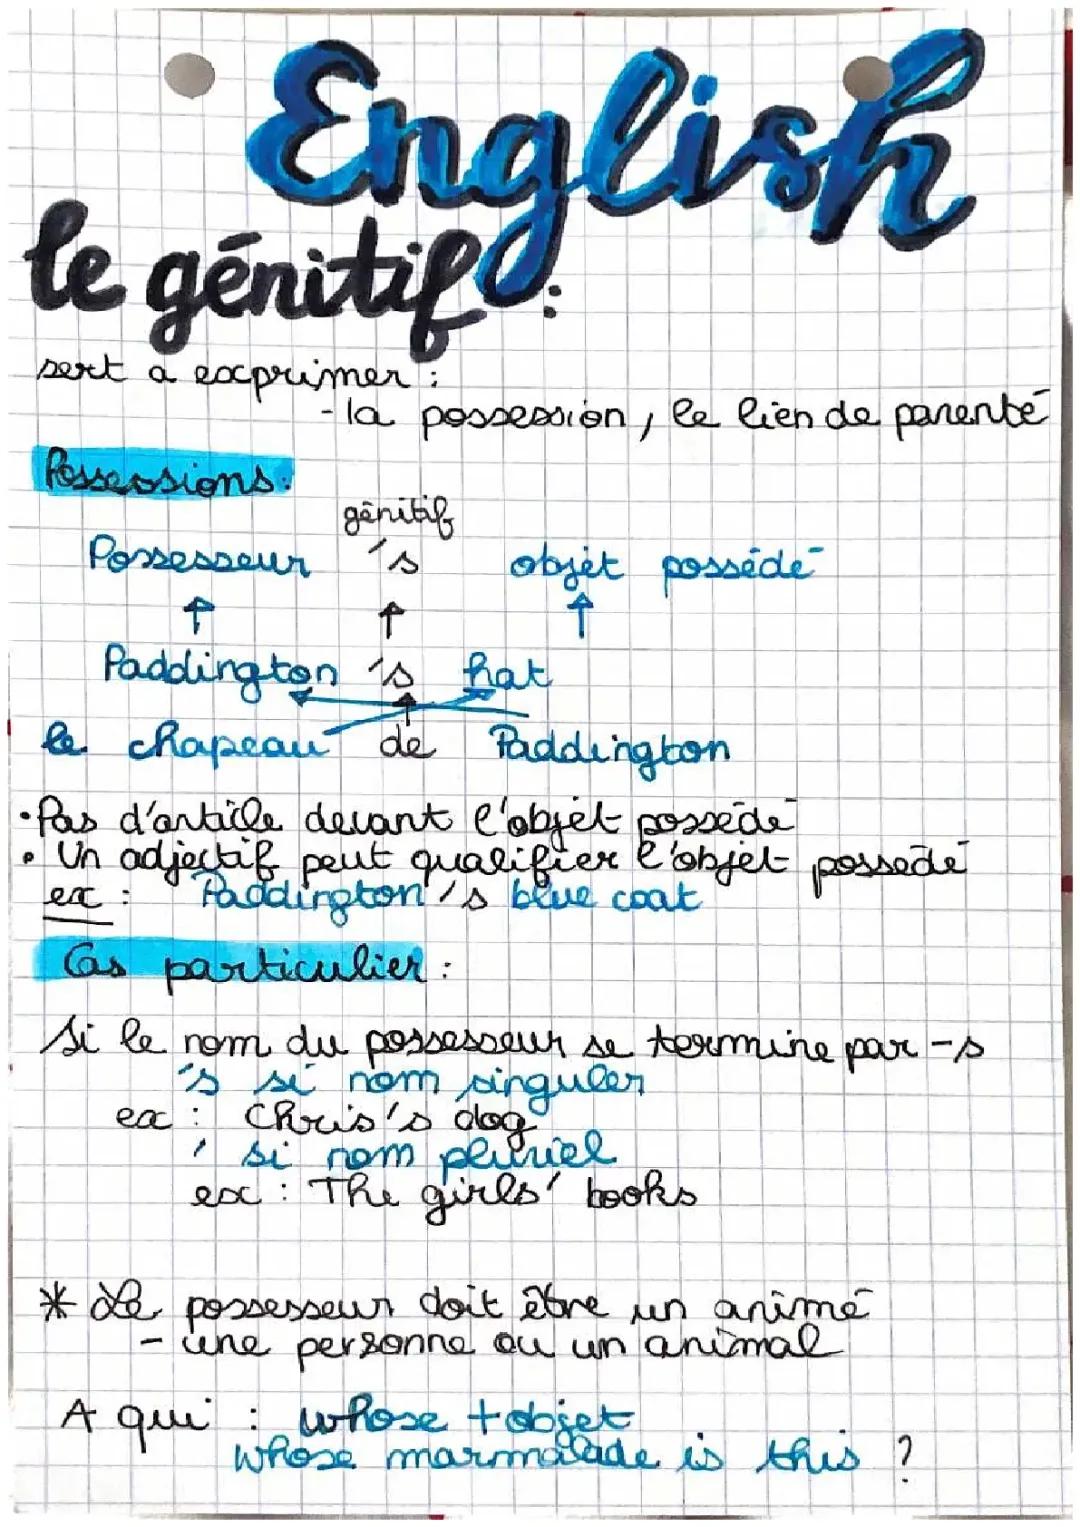 English
le génitif :
sert a exprimer :
- la possession, le lien de parenté
Possessions :
génitif
Possesseur 's objet possédé
Paddington 's hat
le chapeau de Paddington
• Pas d'article devant l'objet possédé
• Un adjectif peut qualifier l'objet possedé
ex : Paddington's blue coat
Cas particulier :
Si le nom du possesseur se termine par -s
's si nom singuler
ex : Chris's dog
' si nom pluriel
ex : The girls' books
* Le possesseur doit être un animé
- une personne ou un animal
A qui : whose + objet
whose marmalade is this ?